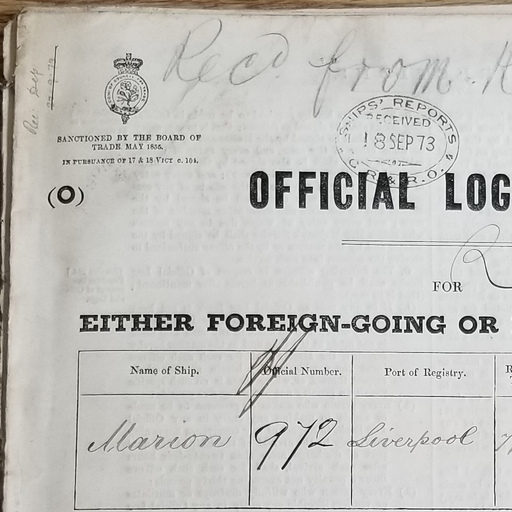 Recd from
SANCTIONED BY THE BOARD OF
TRADE MAY 1855.
IN PURSUANCE OF 17 & 18 VICT c. 104.
SHIPS' REPORTS
RECEIVED
18 SEP 73
G.R.&R.O.
(O)
OFFICIAL LOG
FOR
EITHER FOREIGN-GOING OR
Name of Ship. Official Number. Port of Registry.
Marion 972 Liverpool